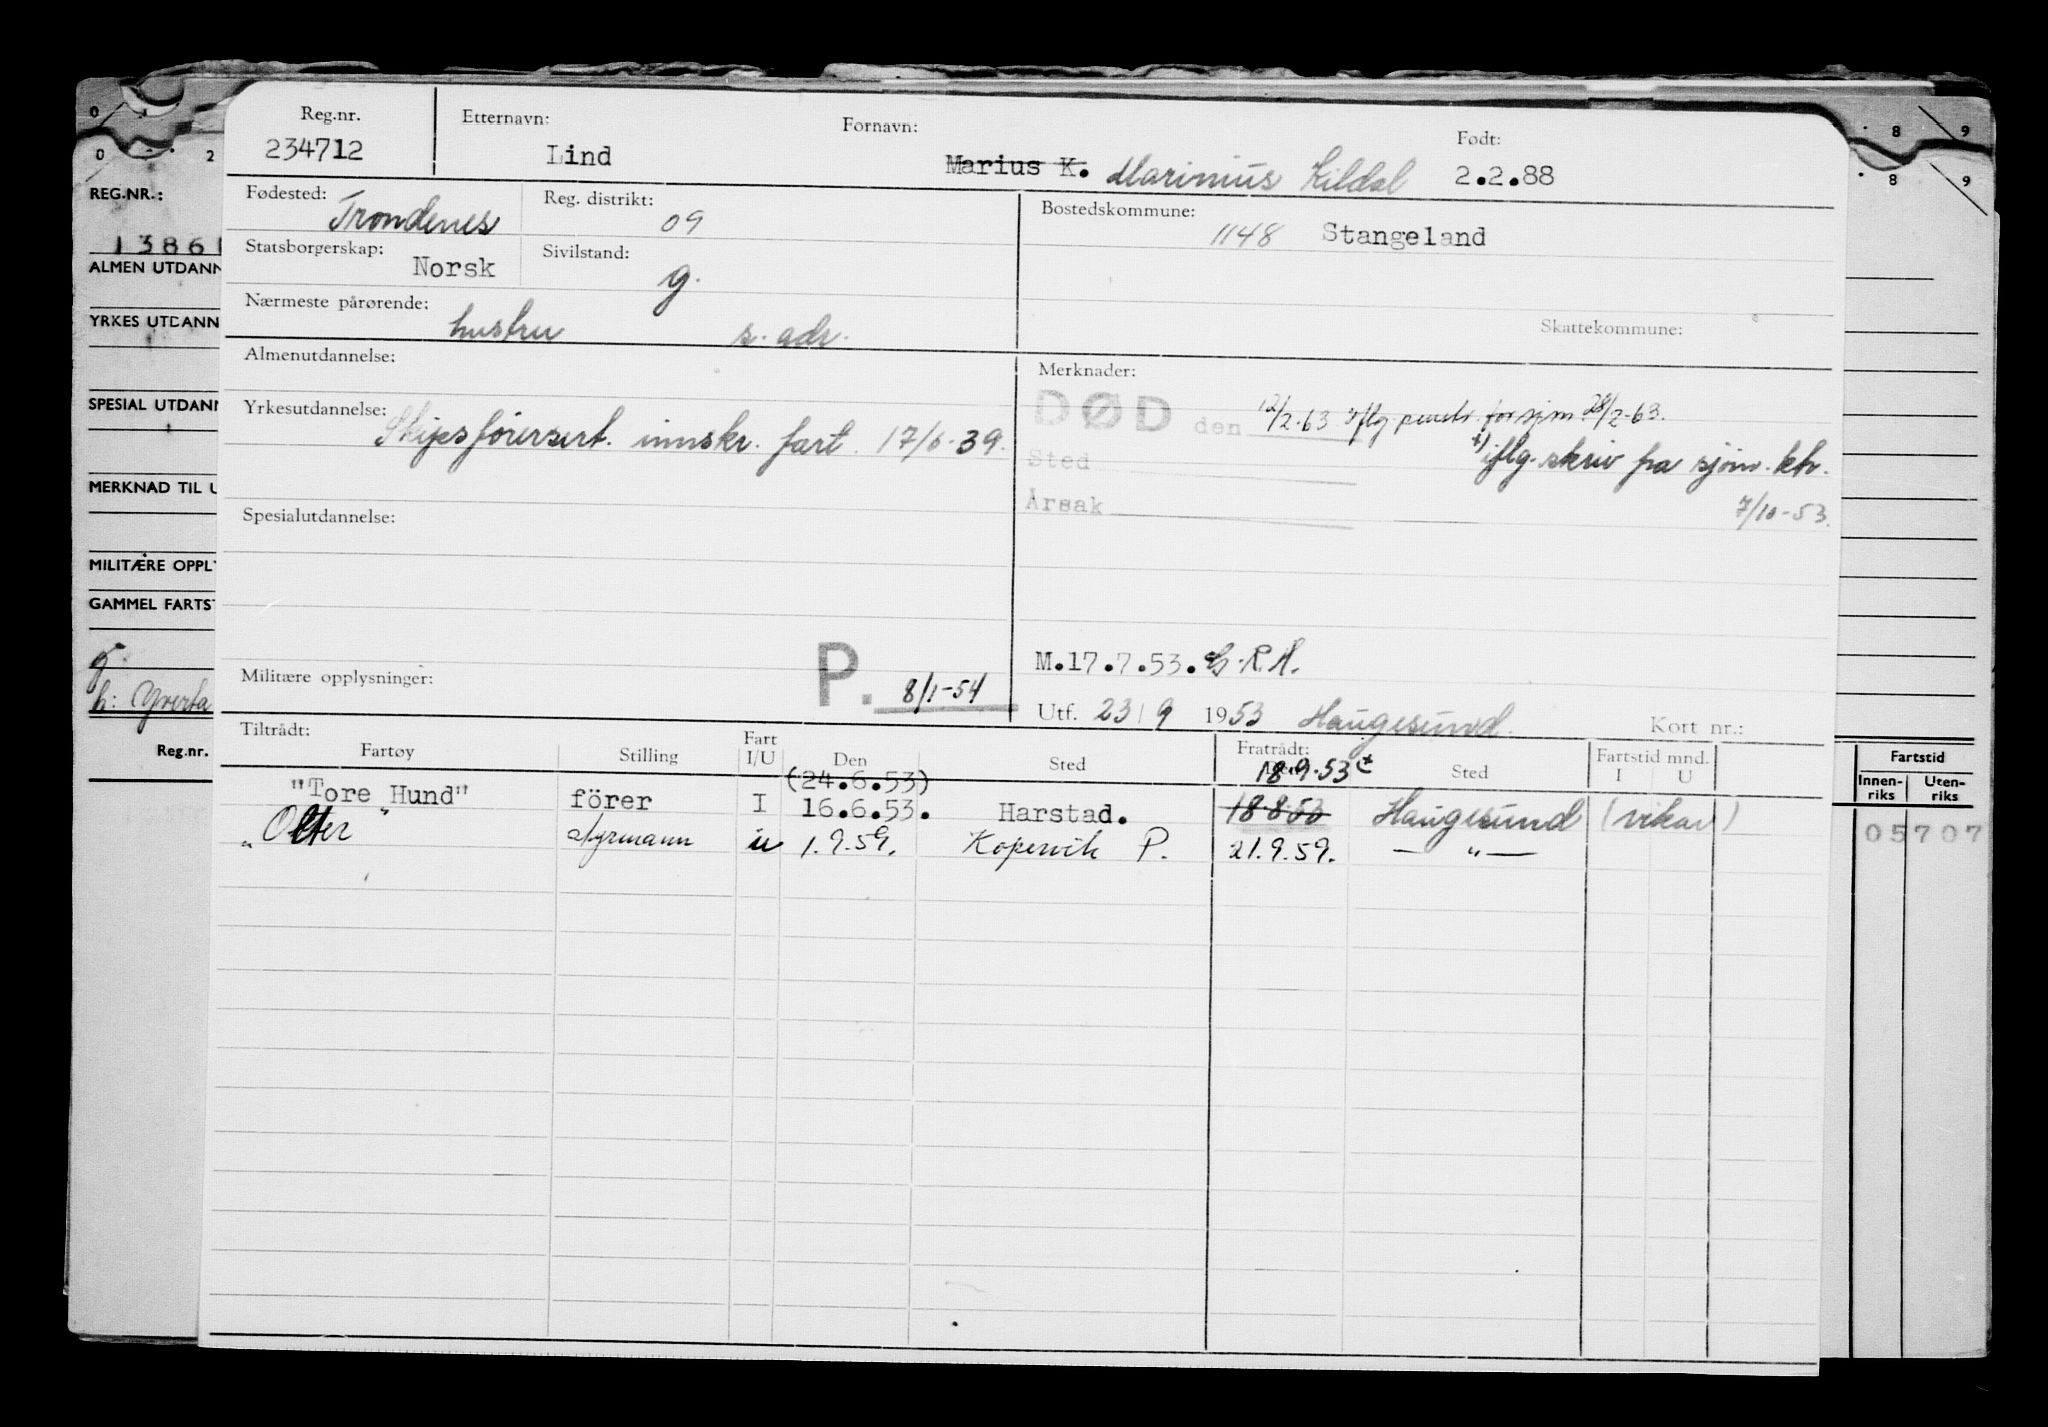 0 1 8 9
0 2 8 9
Reg.nr. Etternavn: Fornavn: Født:
234712 Lind Marius K. Marinius Kildal 2.2.88
REG.NR.:
13861
Fødested: Trondenes Reg. distrikt: 09 Bostedskommune:
1148 Stangeland
Statsborgerskap: Norsk Sivilstand: g.
ALMEN UTDANN
Nærmeste pårørende: hustru s. adr.
YRKES UTDANN
Skattekommune:
Almenutdannelse: Merknader:
DØD den 12/2-63 iflg. for sjm 28/2-63.
Yrkesutdannelse: Skipsförersert. innskr. fart. 17/6-39.
SPESIAL UTDANN
+) iflg. skriv fra sjöm. ktr.
Sted
7/10-53.
Årsak
MERKNAD TIL U
Spesialutdannelse:
MILITÆRE OPPLY
GAMMEL FARTST
g
h: Yverta
M.17.7.53. G.R.A.
Militære opplysninger: P. 8/1-54
Utf. 23/9 1953 Haugesund. Kort nr.:
Tiltrådt: Fratrådt:
Fartøy Stilling Fart I/U Den Sted Sted Fartstid mnd. I U
Reg.nr. Fartstid
Innen-riks Uten-riks
(24.6.53) 18.9.53 +
"Tore Hund" förer I 16.6.53. Harstad. 18.8.53 Haugesund (vikar)
05707
"Olter" styrmann u 1.9.59. Kopervik P. 21.9.59. — " —